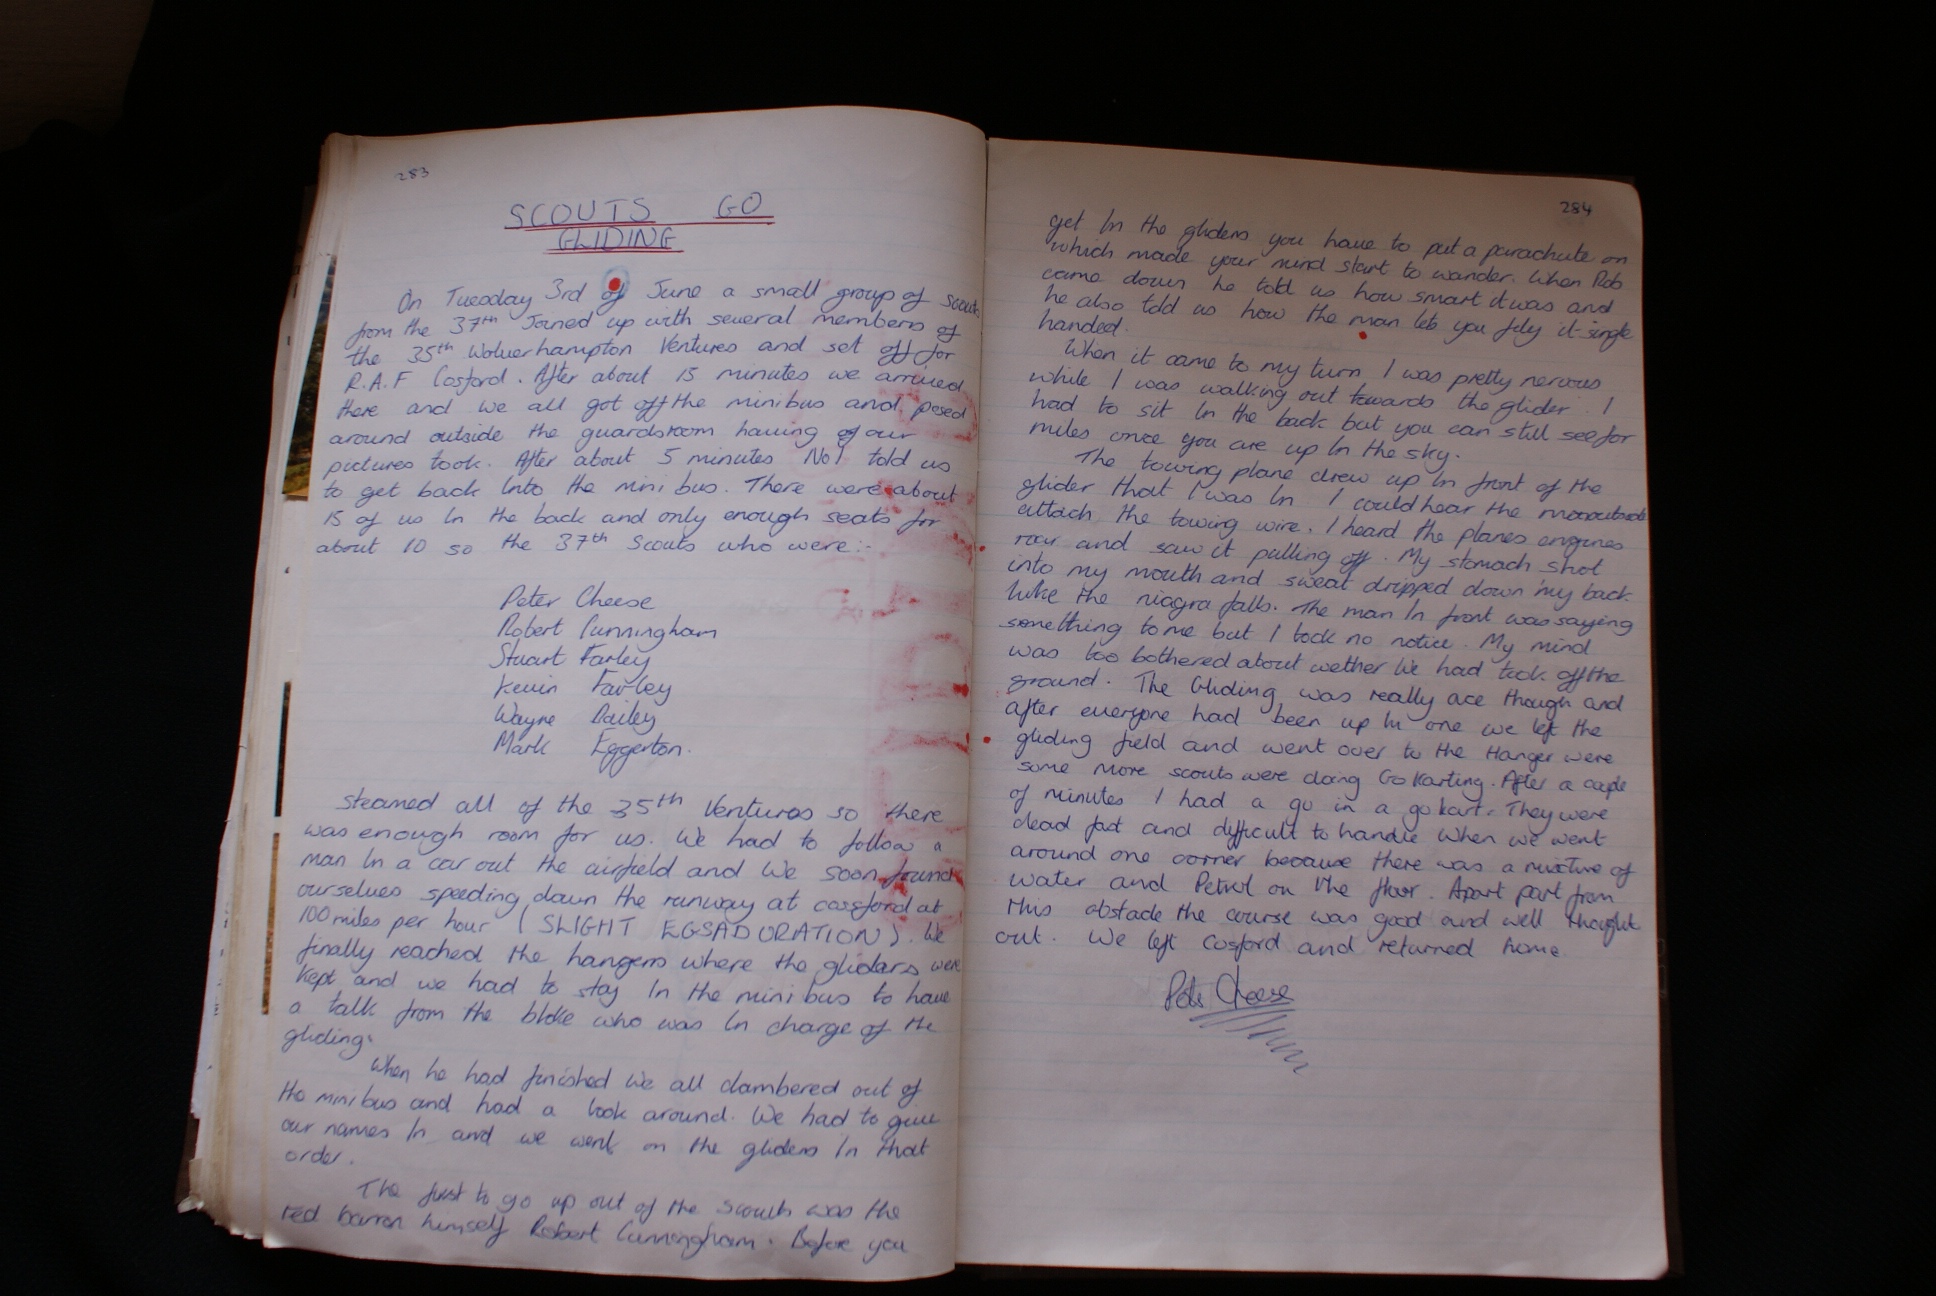 283
SCOUTS GO
GLIDING
On Tuesday 3rd of June a small group of scouts
from the 37th Joined up with several members of
the 35th Wolverhampton Ventures and set off for
R.A.F Cosford. After about 15 minutes we arrived
there and we all got off the minibus and posed
around outside the guardsroom having of our
pictures took. After about 5 minutes Nol told us
to get back Into the mini bus. There were about
15 of us In the back and only enough seats for
about 10 so the 37th Scouts who were:-
Peter Cheese
Robert Cunningham
Stuart Farley
Kevin Farley
Wayne Dailey
Mark Eggerton.
steamed all of the 35th Ventures so there
was enough room for us. We had to follow a
man In a car out the airfield and We soon found
ourselves speeding down the runway at cossford at
100 miles per hour (SLIGHT EGSADURATION). We
finally reached the hangers where the gliders were
kept and we had to stay In the mini bus to have
a talk from the bloke who was In charge of the
gliding.
When he had finished We all clambered out of
the minibus and had a look around. We had to give
our names In and we went on the gliders In that
order.
The first to go up out of the scouts was the
red barron himself Robert Cunningham. Before you
284
get In the gliders you have to put a parachute on
which made your mind start to wander. When Rob
came down he told us how smart it was and
he also told us how the man lets you fly it single
handed.
When it came to my turn I was pretty nervous
while I was walking out towards the glider. I
had to sit In the back but you can still see for
miles once you are up In the sky.
The towing plane drew up In front of the
glider that I was In I could hear the man outside
attach the towing wire. I heard the planes engines
roar and saw it pulling off. My stomach shot
into my mouth and sweat dripped down my back
like the niagra falls. The man In front was saying
something to me but I took no notice. My mind
was too bothered about wether We had took off the
ground. The Gliding was really ace though and
after everyone had been up In one we left the
gliding field and went over to the Hanger were
some more scouts were doing Go Karting. After a cuple
of minutes I had a go in a go kart. They were
dead fast and difficult to handle When we went
around one corner because there was a mixture of
water and Petrol on the floor. Apart part from
this obstacle the course was good and well thought
out. We left Cosford and returned home.
Pete Cheese